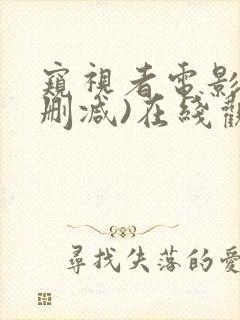 窺視者電影
刪减)在綫觀
尋找失落的愛